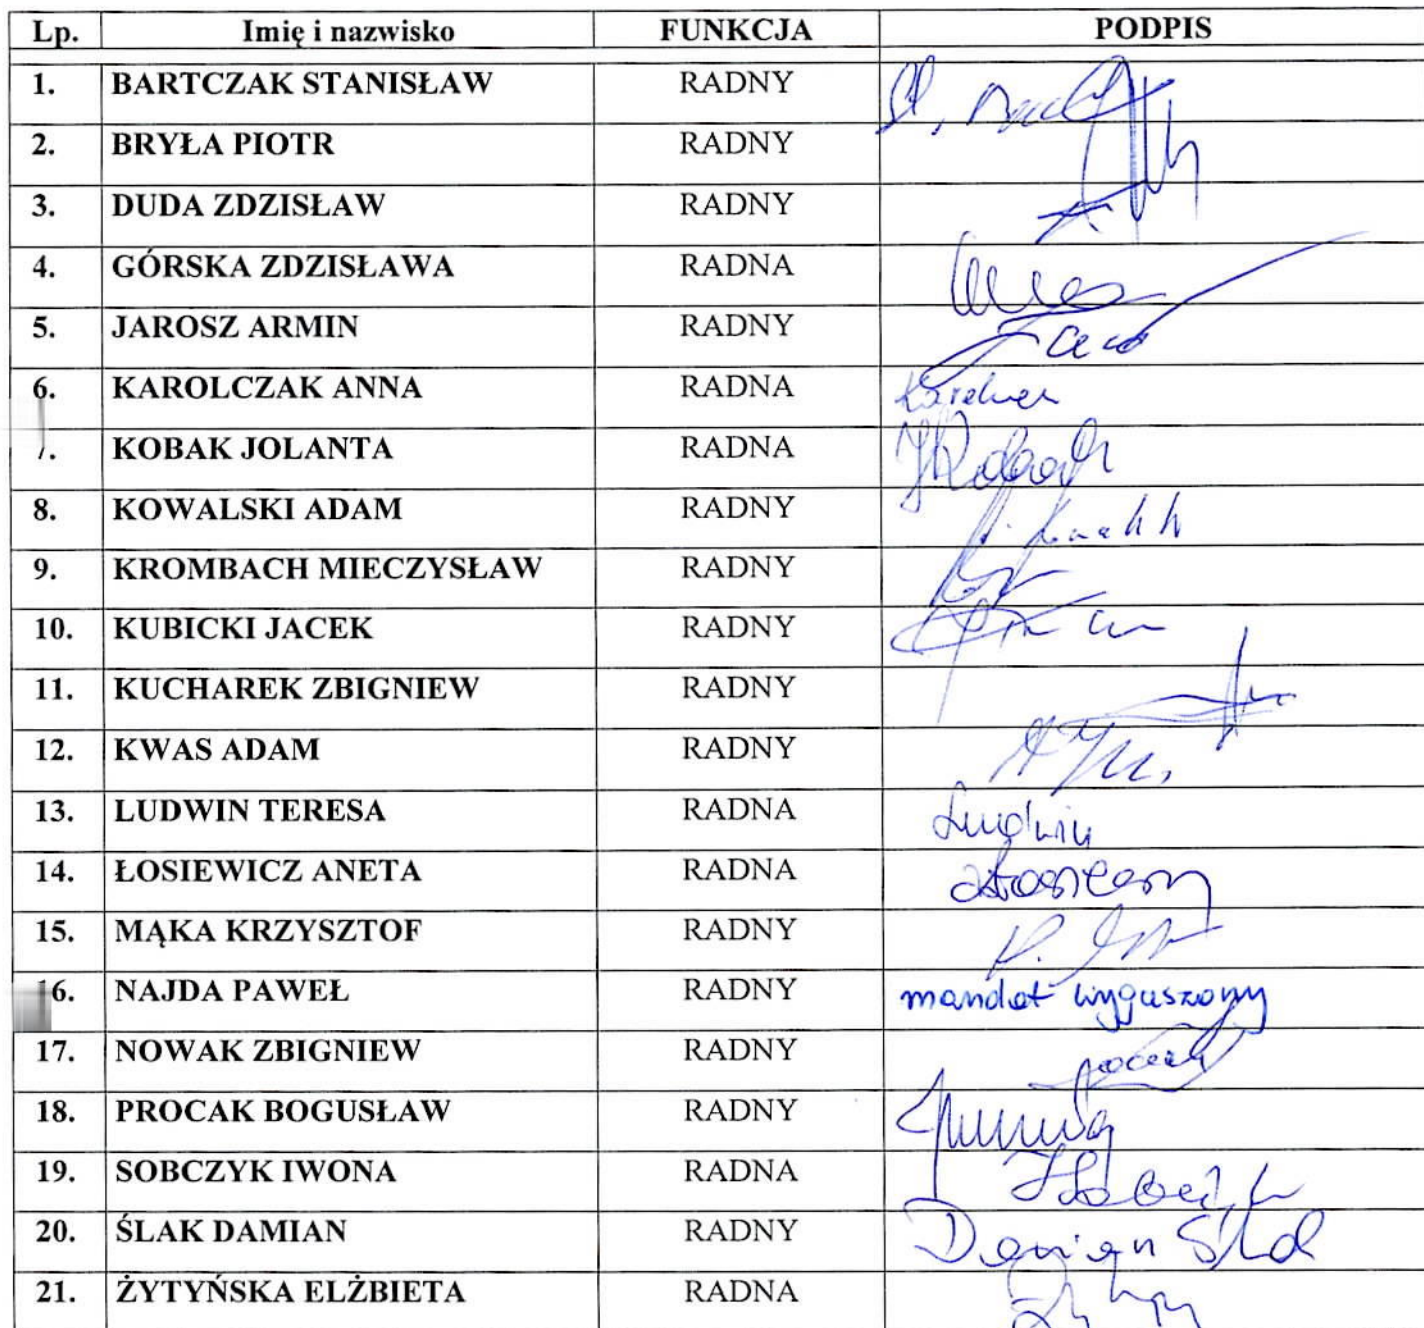 Lp. Imię i nazwisko FUNKCJA PODPIS
1. BARTCZAK STANISŁAW RADNY
2. BRYŁA PIOTR RADNY
3. DUDA ZDZISŁAW RADNY
4. GÓRSKA ZDZISŁAWA RADNA
5. JAROSZ ARMIN RADNY
6. KAROLCZAK ANNA RADNA
7. KOBAK JOLANTA RADNA
8. KOWALSKI ADAM RADNY
9. KROMBACH MIECZYSŁAW RADNY
10. KUBICKI JACEK RADNY
11. KUCHAREK ZBIGNIEW RADNY
12. KWAS ADAM RADNY
13. LUDWIN TERESA RADNA Ludwin
14. ŁOSIEWICZ ANETA RADNA
15. MĄKA KRZYSZTOF RADNY
16. NAJDA PAWEŁ RADNY mandat wyguszony
17. NOWAK ZBIGNIEW RADNY
18. PROCAK BOGUSŁAW RADNY
19. SOBCZYK IWONA RADNA
20. ŚLAK DAMIAN RADNY Damian
21. ŻYTYŃSKA ELŻBIETA RADNA